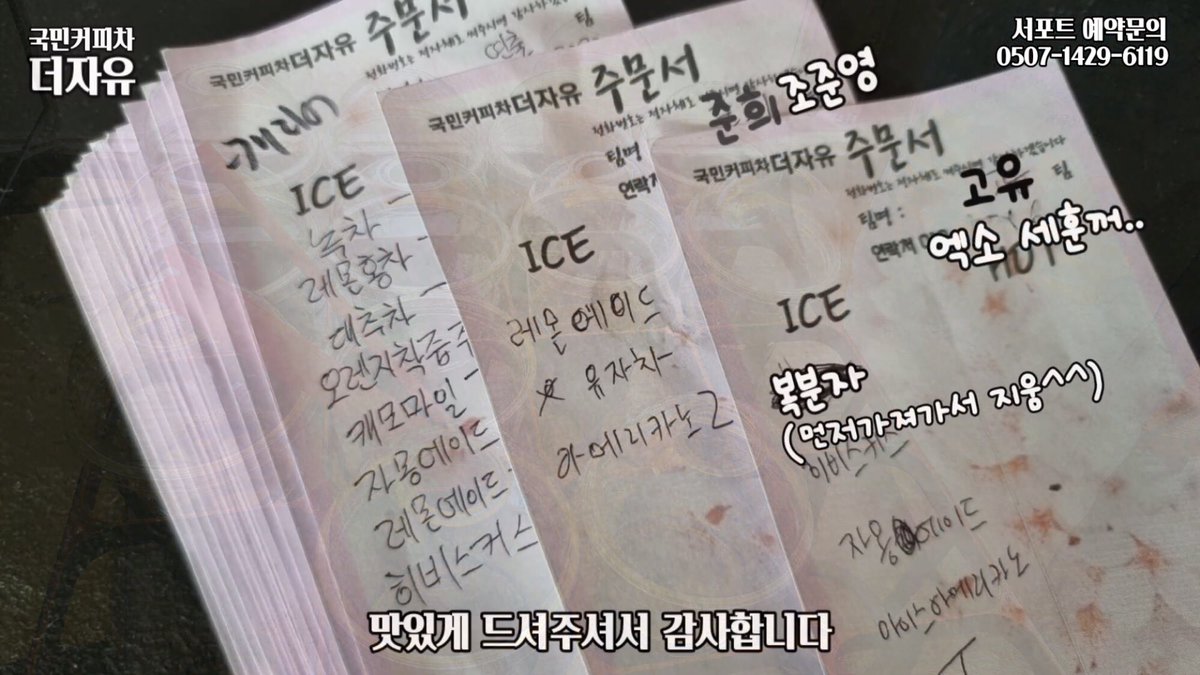 국민커피차
더자유
서포트 예약문의
0507-1429-6119
국민커피차더자유 주문서
팀
ICE
녹차
레몬홍차
대추차
오렌지착즙주
캐모마일
자몽에이드
레몬에이드
히비스커스
국민커피차더자유 주문서
팀명
연락처
준희 조준영
ICE
레몬에이드
유자차
아메리카노 2
국민커피차더자유 주문서
팀명 : 고유 팀
연락처
엑소 세훈꺼..
HOT
ICE
복분자
(먼저가져가서 지웅^^)
히비스커스
자몽에이드
아이스아메리카노
맛있게 드셔주셔서 감사합니다